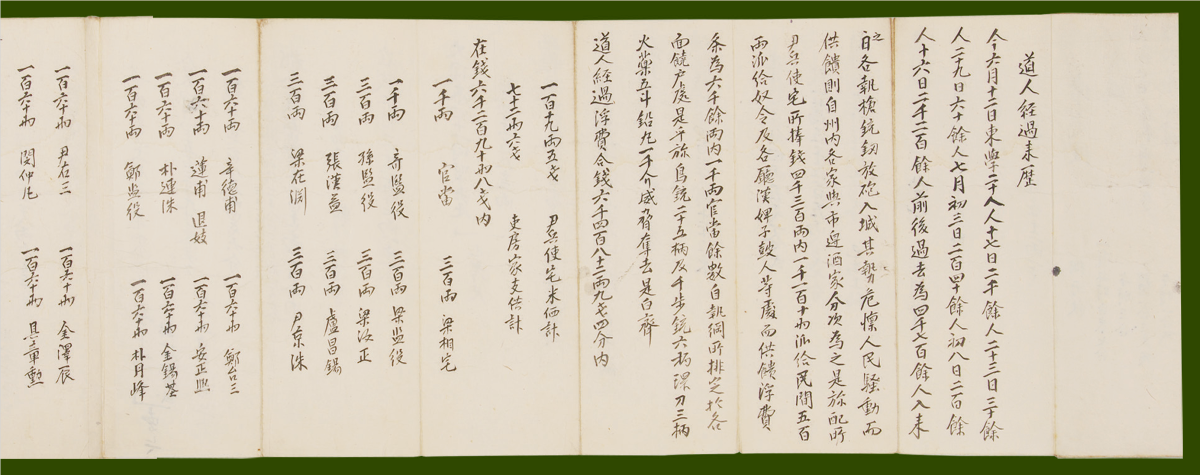 道人經過来歷
今六月十二日東學二十八人十七日二千餘人二十三日三十餘
人二十九日六十餘人七月初三日二百四十餘人初八日二百餘
人十六日二千二百餘人前後過去為四千七百餘人入来
之日各執槍銃釰放砲入城其勢危懍人民騷動而
供饋則自州內各家與市邊酒家分次為之是旀配所
尹兵使宅所捧錢四千三百兩內一千一百十兩派给民間五百
兩派给奴令及各廳漢婢子皷人等處而供饋浮費
条為六千餘兩內一千兩官當餘數自執綱所排定於各
面饒户處是乎旀鳥銃二十五柄及千步銃六柄環刀三柄
火藥五斗鉛丸一千介威脅奪去是白齊
道人經過浮費合錢六千四百八十二兩九戔四分內
一百十九兩五戔 尹兵使宅米価計
七十二兩六戔 吏房家支供計
在錢六千二百九十兩八戔內
一千兩 官當 三百兩 梁相宅
一千兩 奇監役 三百兩 梁监役
三百兩 孫監役 三百兩 梁汝正
三百兩 張漢益 三百兩 盧昌錫
三百兩 梁在渊 三百兩 尹京洙
一百六十兩 辛德甫 一百六十兩 鄭台三
一百六十兩 蓮甫 退妓 一百六十兩 安正熙
一百六十兩 朴連洙 一百六十兩 金錫基
一百六十兩 鄭监役 一百六十兩 朴月峰
一百六十兩 尹右三 一百六十兩 金澤辰
一百六十兩 閔仲凡 一百六十兩 具章勳